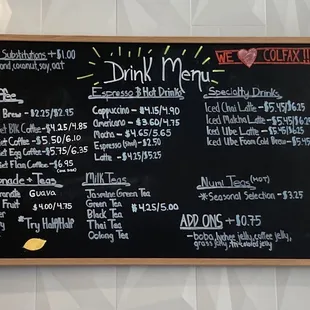 Substitutions +$1.00
ond, coconut, soy, oat
Drink Menu
WE COLFAX!!
Brew - $2.25/$2.95
Blk Coffee - $4.25/4.85
Coffee - $5.50/6.10
Egg Coffee - $5.75/6.35
Flan Coffee - $6.95
Espresso & Hot Drinks
Cappuccino - $4.15/4.90
Americano - $3.60/4.75
Mocha - $4.65/5.65
Espresso - $2.50
Latte - $4.25/5.25
Specialty Drinks
Iced Chai Latte - $5.45/$6.25
Iced Matcha Latte - $5.45/$6.25
Iced Ube Latte - $5.45/$6.25
Iced Ube Foam Cold Brew - $5.45
nade + Teas
Guava
Fruit
$4.00/4.75
*Try Half/Half
Milk Teas
Jasmine Green Tea
Green Tea
Black Tea
Thai Tea
Oolong Tea
$4.25/5.00
Teas (HOT)
*Seasonal Selection - $3.25
ADD ONS +$0.75
- boba, lychee jelly, coffee jelly,
grass jelly,